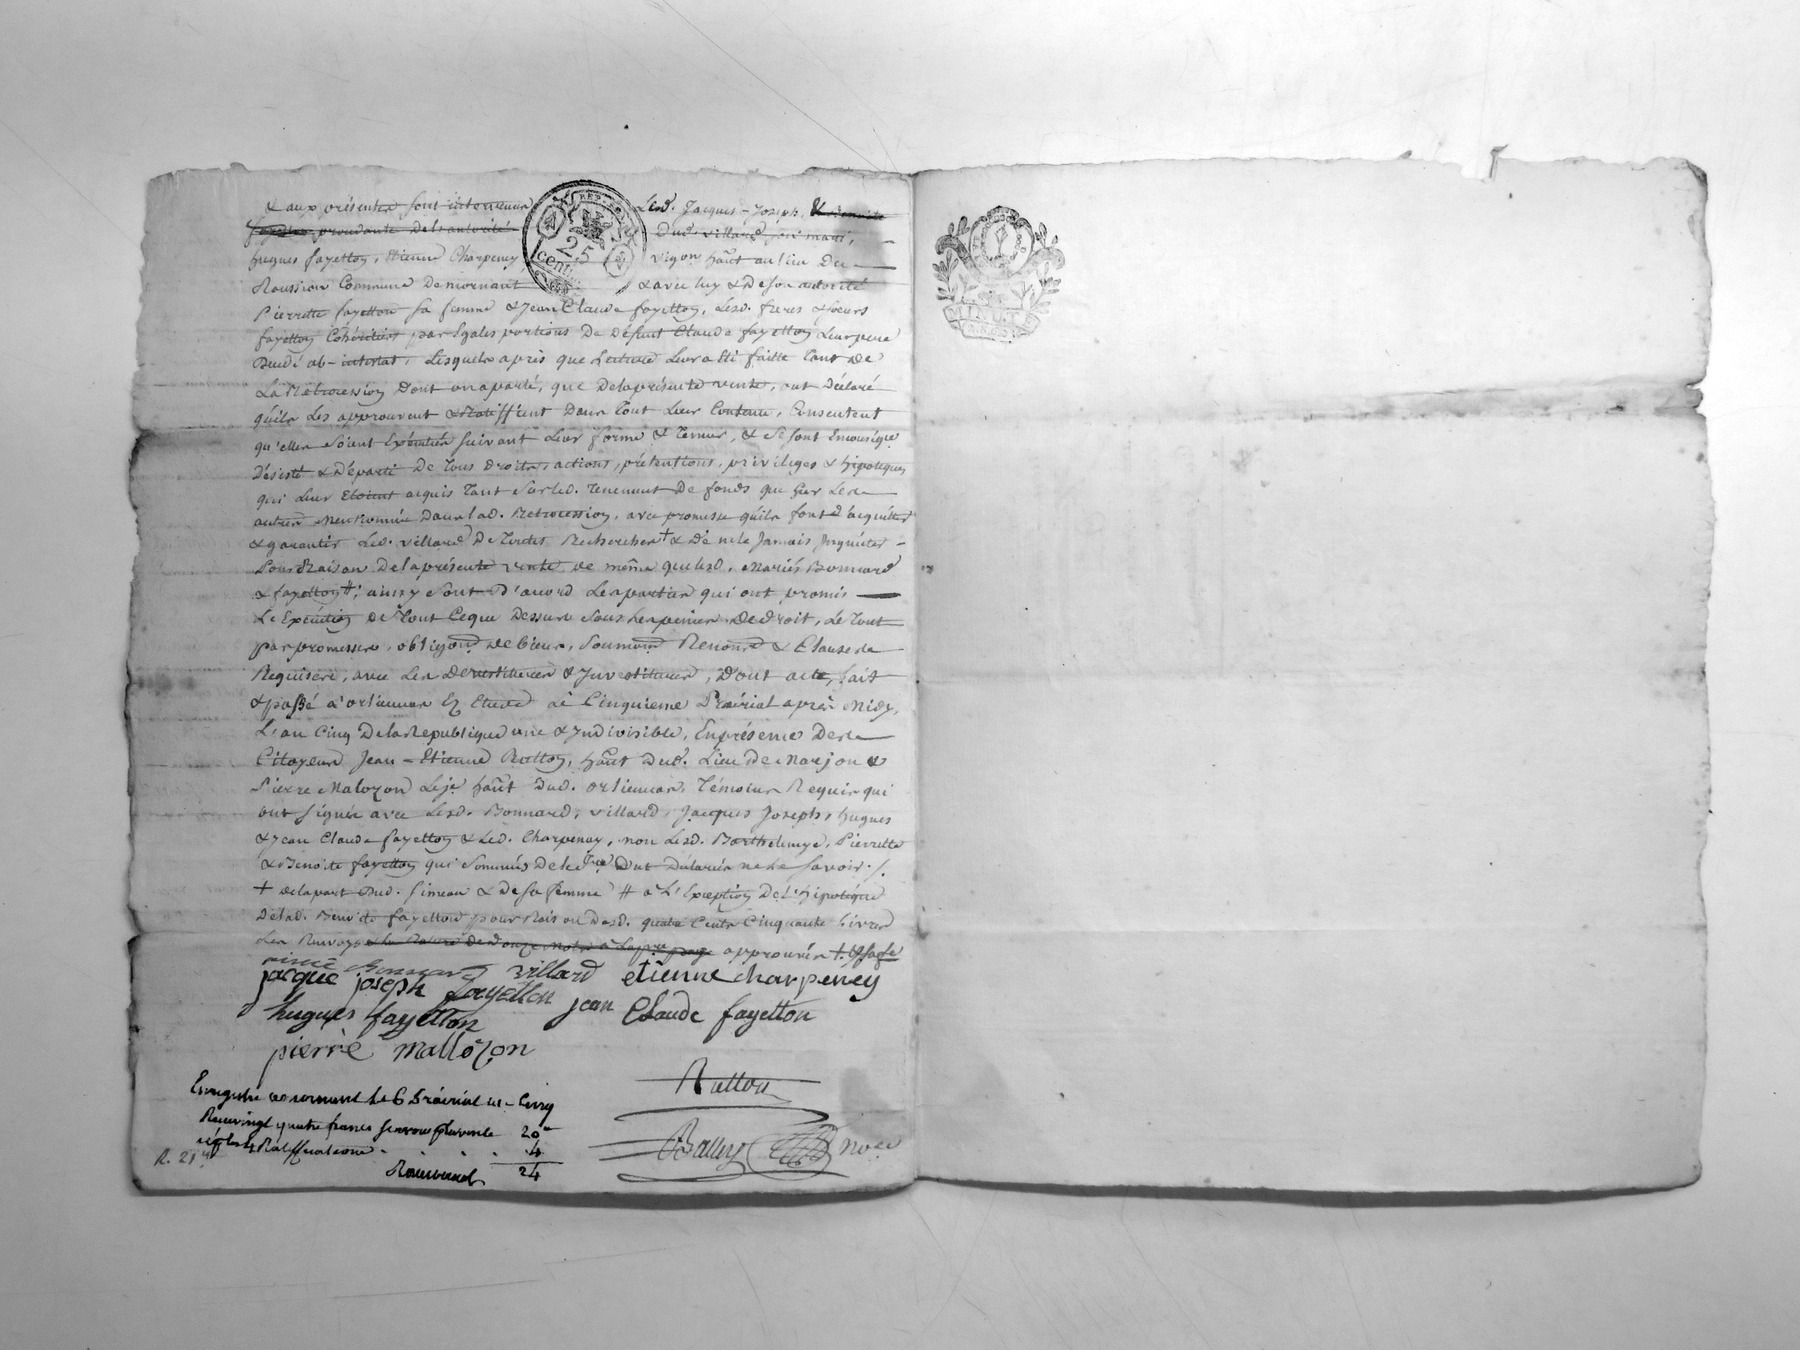 & aux présentes sont intervenus Lesd. Jacques-Joseph, & Benoite
fayetton procedante de l'autorité Dud. villard son mari,
hugues fayetton, Etienne Charpeney vigon habt au lieu De
Roussion Commune Demornant & avec luy & De son autorité
Pierrette fayetton sa femme & Jean Claude fayetton, Lesd. freres & soeurs
fayetton Cohéritiers par Egales portions De Défunt Claude fayetton Leur pere
Decédé ab-intestat, Lesquels après que Lecture Leur a été faitte Tant de
La Rétrocession Dont on a parlé, que Delaprésente vente, ont Déclaré
qu'ils Les approuvent & Ratiffient Dans Tout Leur Contenu, Consentent
qu'elles soient Exécutées suivant Leur forme & Teneur, & se sont Enconséqce
Désisté & Départi De Tous droits, actions, prétentions, priviléges & hipoteques
qui Leur Etoient acquis Tant sur led. Tenement De fonds que sur Les
autres Mentionnés Dans lad. Retrocession, avec promesse qu'ils font d'acquitter
& garantir Led. villard De Toutes Recherches + & De ne le Jamais Inquiéter
sous Raison Delaprésente vente de même que lesd. Mariés Bonnard
& fayetton #; ainsy sont D'acord Les parties qui ont promis
L'Exécution de Tout Ceque Dessus sous Les peines De droit, Le Tout
par promesses, obligaons de biens, soumons Renonns & Clauses
Requises, avec Les Devestitures & Investitures, Dont acte, fait
& passé à orlienas Ez Etude le Cinquieme Prairial après Midy,
L'an Cinq Dela Republique une & Indivisible, Enprésence Des
Citoyens Jean-Etienne Rutton, habt Dud. Lieu De Marjon &
Pierre Malozon Leje habt Dud. orlienas, Témoins Requis qui
ont signés avec Lesd. Bonnard, villard, Jacques Joseph, hugues
& Jean Claude fayetton & Led. Charpenay, non Lesd. Barthelemye, Pierrette
& Benoite fayetton qui sommés De le fre ont Déclarés ne le savoir ./.
+ de la part Dud. Simeau & De sa femme # à L'Exception De L'hipotéque
De lad. Benoite fayetton pour Raison Desd. quatre Cents Cinquante Livres
Les Renvoys & la Rature de d'onze mots à la pre page approuvés
villard etienne charpeney
jacque joseph fayetton
hugues fayetton jean Claude fayetton
pierre mallozon
Rutton
Enregistré a mornant Le 6 Prairial an Cinq
Reçu vingt quatre francs savoir pr la vente 20
et pr les 4 Ratiffications 4
24
R. 21
No.re
REP. FRA.
25
cent.
MINUTE